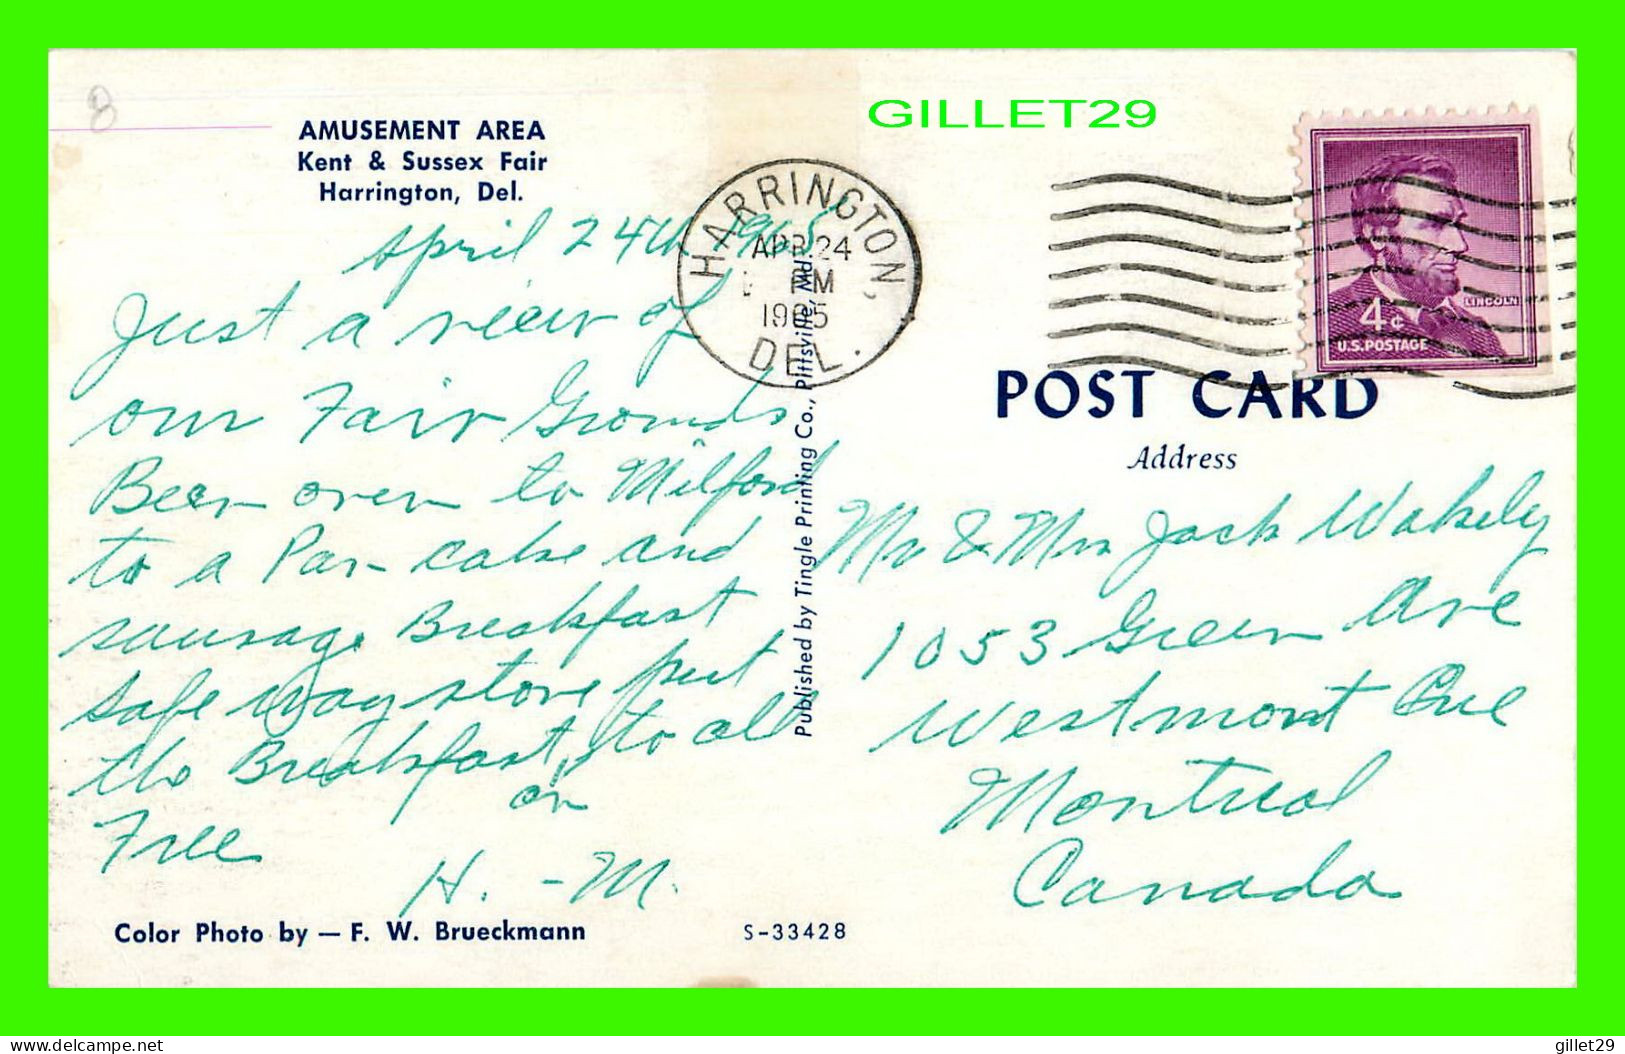 8
AMUSEMENT AREA
Kent & Sussex Fair
Harrington, Del.
GILLET29
HARRINGTON,
APR 24
PM
1965
DEL.
LINCOLN
4¢
U.S. POSTAGE
April 24th 1965
Just a view of
our Fair Grounds
Been over to Milford
to a Pan-cake and
sausage Breakfast
Safe way store put
the Breakfast, to all
on
Free
H. - M.
POST CARD
Address
Mr & Mrs Jack Wakely
1053 Green Ave
Westmont Que
Montreal
Canada
Published by Tingle Printing Co., Pittsville, Md.
Color Photo by — F. W. Brueckmann
S-33428
delcampe.net
gillet29